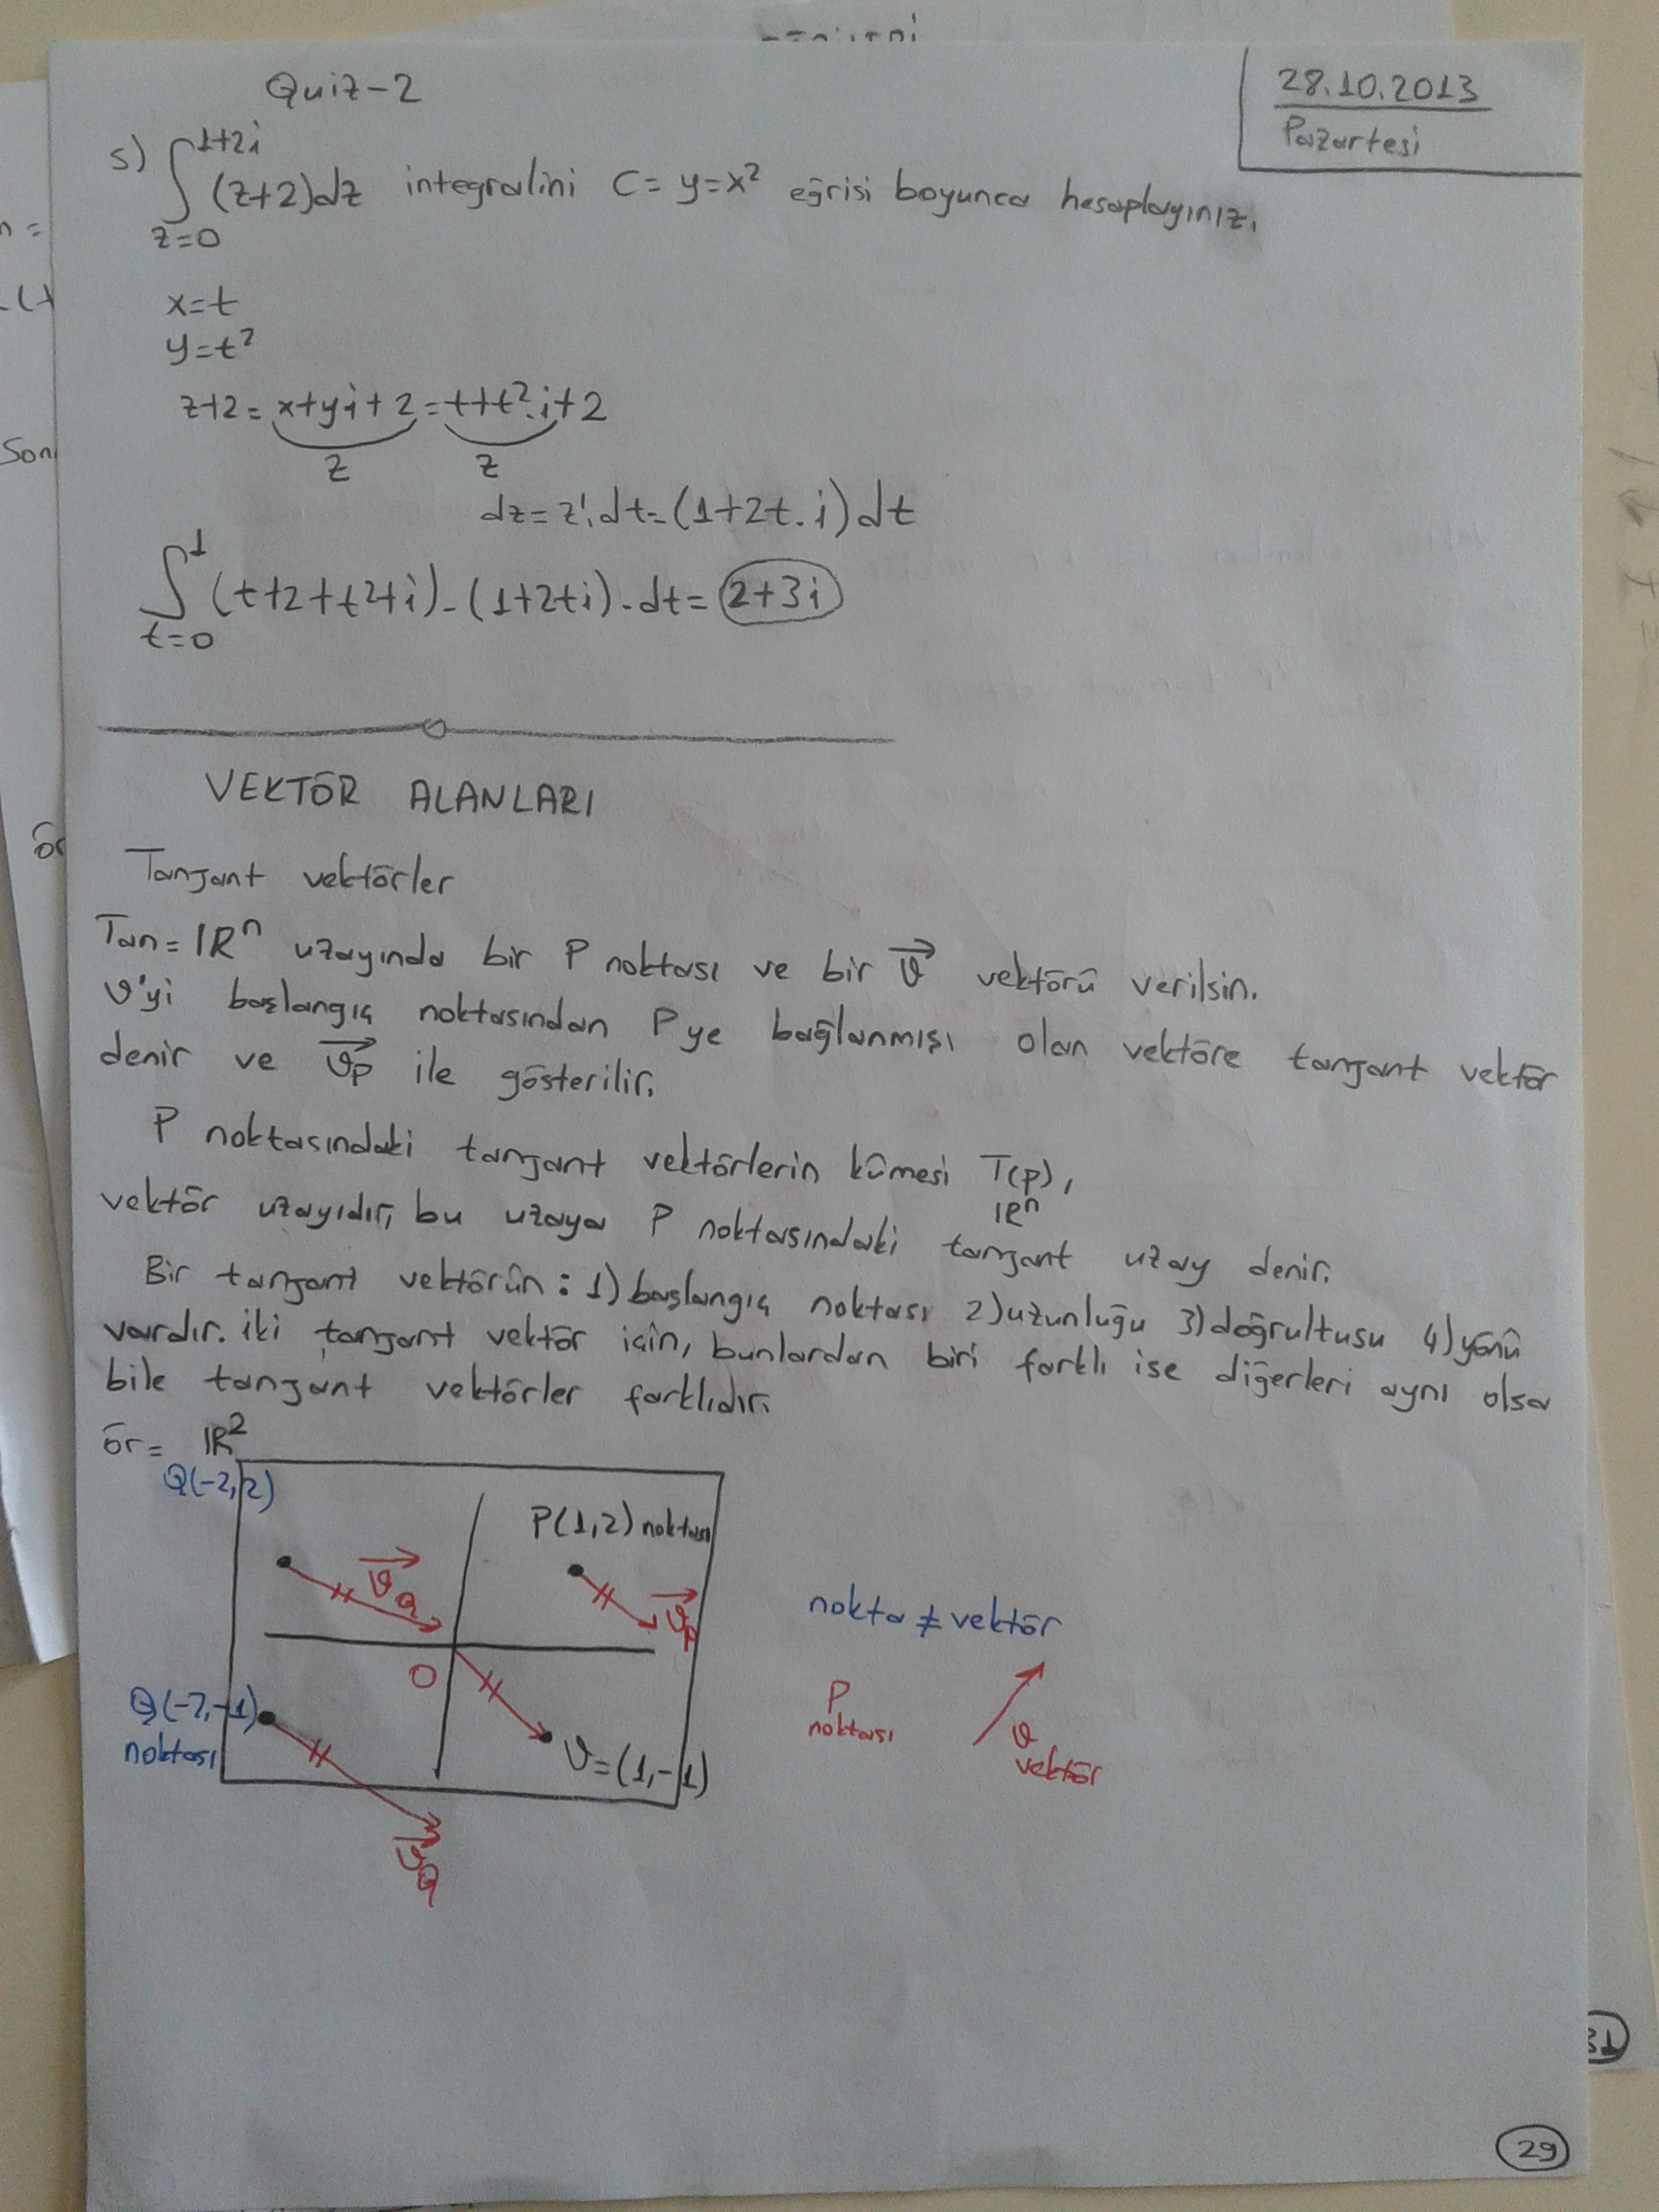 Quiz-2
28.10.2013
Pazartesi
s) ∫ 1+2i
(z+2)dz integralini C= y=x² eğrisi boyunca hesaplayınız.
z=0
x=t
y=t²
z+2= x+yi+2=t+t².i+2
z z
dz=z'.dt=(1+2t.i)dt
∫ 1
(t+2+t²+i)-(1+2ti).dt= 2+3i
t=0
VEKTÖR ALANLARI
Tanjant vektörler
Tan= IRⁿ uzayında bir P noktası ve bir v⃗ vektörü verilsin.
v'yi başlangıç noktasından P ye bağlanmışı olan vektöre tanjant vektör
denir ve v⃗p ile gösterilir.
P noktasındaki tanjant vektörlerin kümesi T(p),
IRⁿ
vektör uzayıdır, bu uzaya P noktasındaki tanjant uzay denir.
Bir tanjant vektörün: 1)başlangıç noktası 2)uzunluğu 3)doğrultusu 4)yönü
vardır. iki tanjant vektör için, bunlardan biri farklı ise diğerleri aynı olsa
bile tanjant vektörler farklıdır.
ör= IR²
Q(-2,2)
P(1,2) noktası
v⃗Q
v⃗p
O
Q(-2,-1)
noktası
v=(1,-1)
v⃗Q
nokta ≠ vektör
P
noktası
v
vektör
29
31
Son
ör